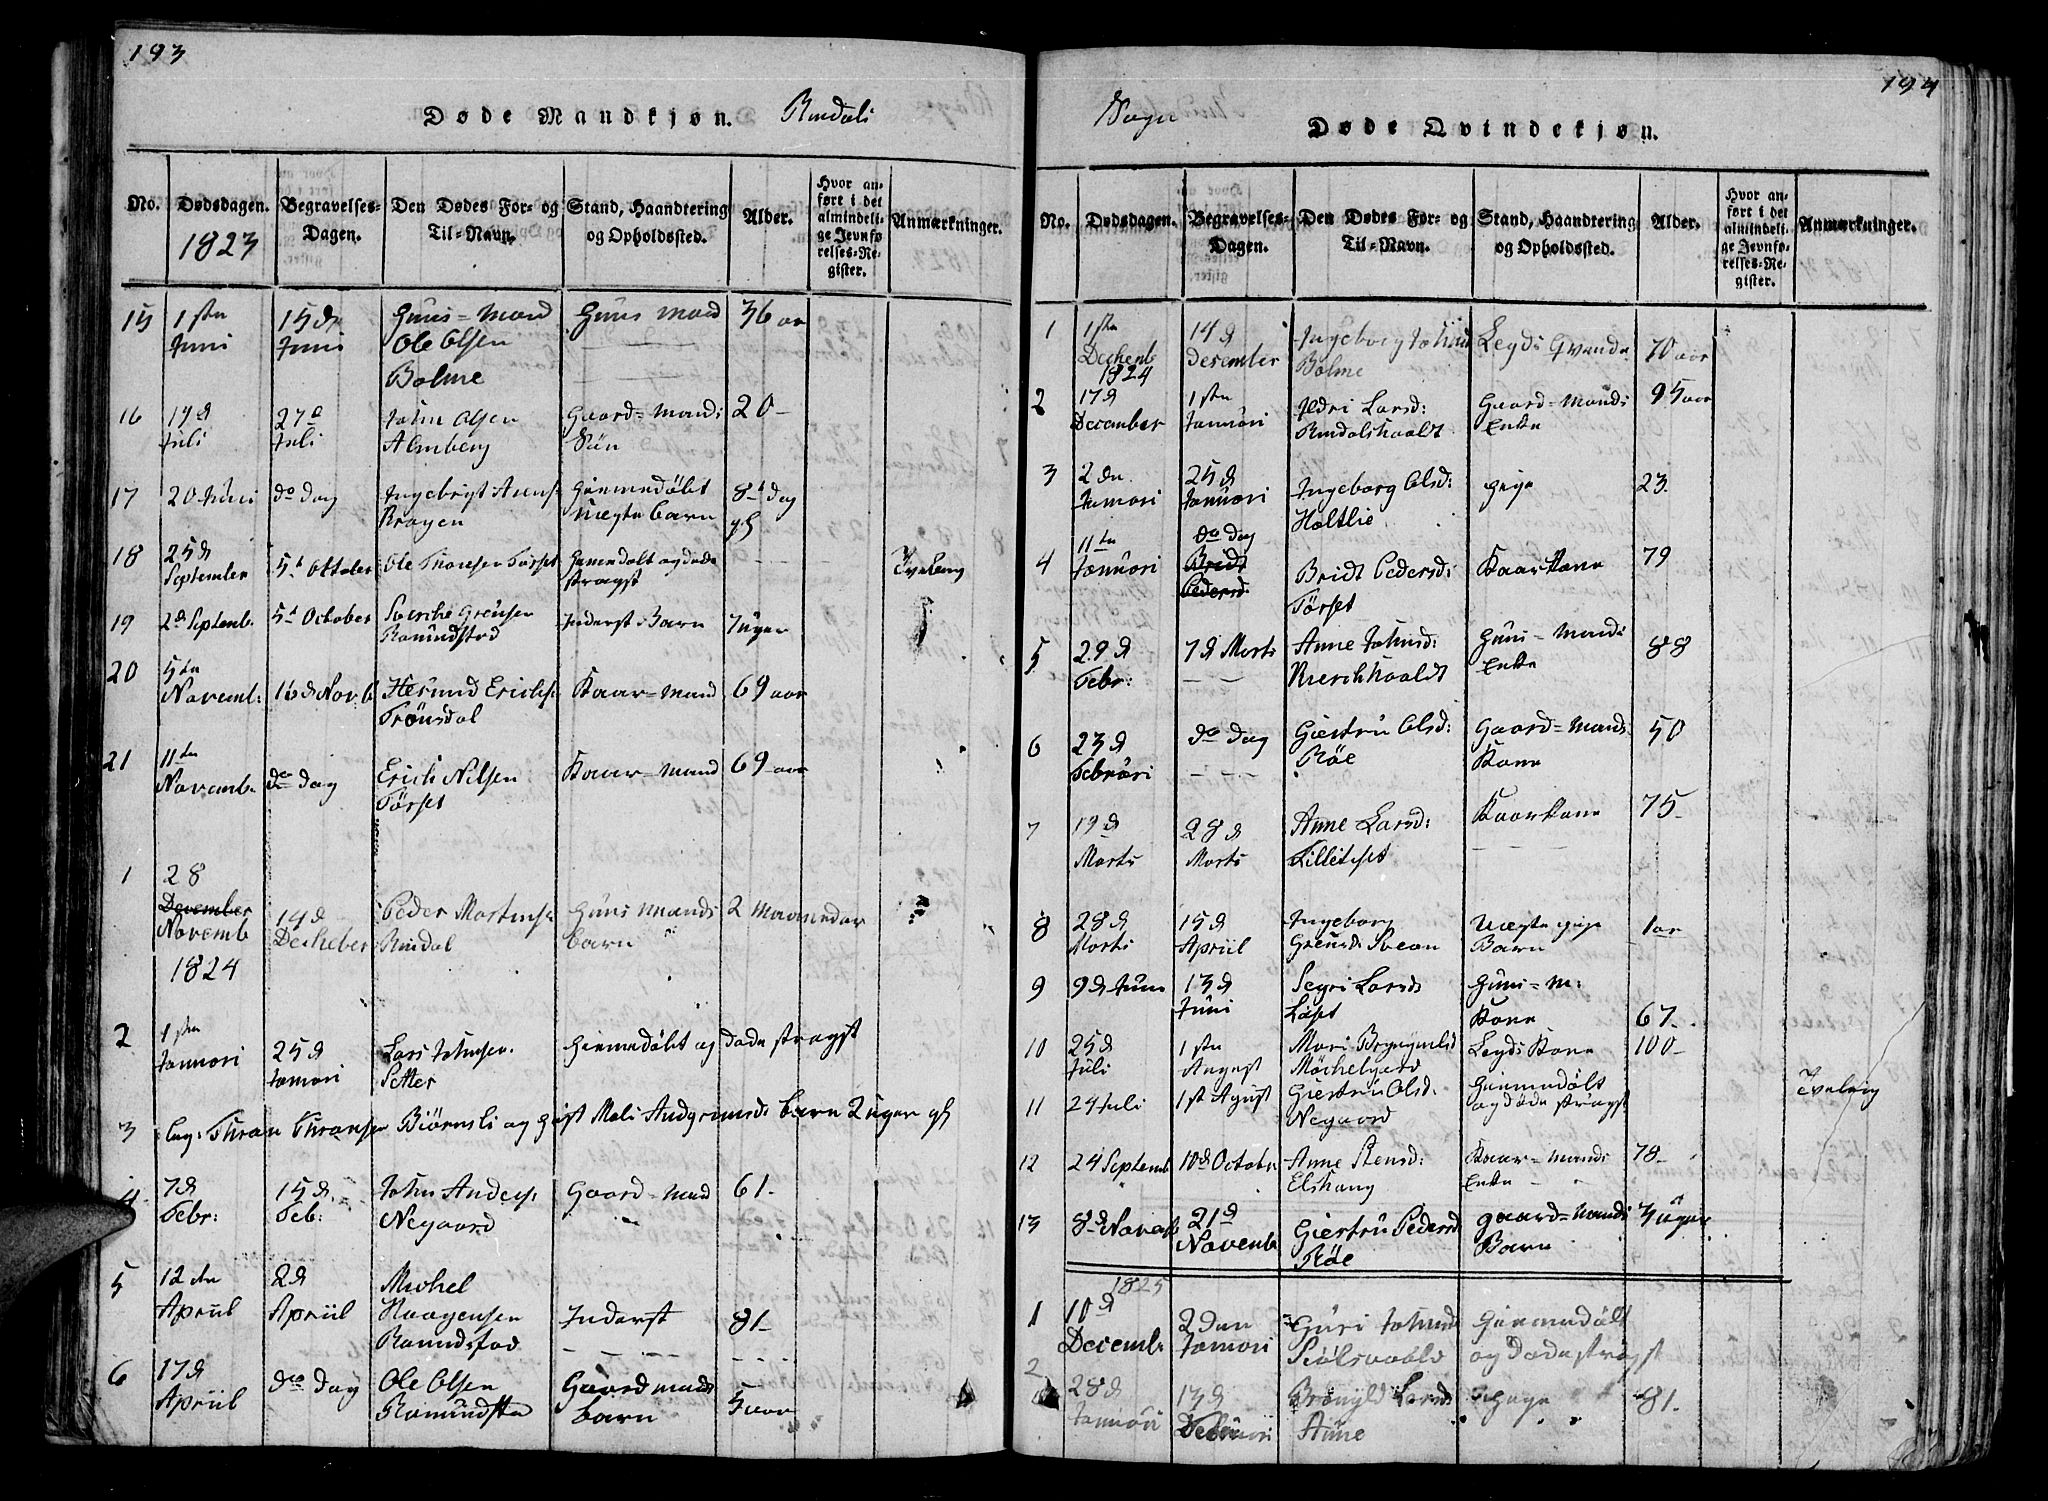 193
Døde Mandkjøn. Rindals
No. Dødsdagen. Begravelses-Dagen. Den Dødes For- og Til-Navn. Stand, Haandtering og Opholdssted. Alder. Hvor anført i det almindelige Jevnførelses-Register. Anmærkninger.
1823
15 1ste Juni 15d Juni Huus=Mand Ole Olsen Bolme Huus Mand 36 aar
16 19d Juli 27d Juli John Olsen Almberg Gaard=Mands Søn 20-
17 20 Juni do dag Ingebrigt Arens: Bragen Hiemmedøbt uægte barn 8t dag gl
18 25d September 5t Octtober Ole Thoresen Tørset Hiemdøbt og døde stragst Tveling
19 2d Septemb. 5t October Sverche Grensen Romundstad Inderst Barn 7 uger
20 5te Novemb: 16d Novb Hesund Erichs: Trønsdal Kaar=Mand 69 aar
21 11te Novemb. do dag Erich Nilsen Tørset Kaar=Mand 69 aar
1 28 December Novemb 14d Decheber Peder Mortensen Rindal Huus Mands barn 2 Maaneder
1824
2 1ste Januari 25d Januari Lars Johnsen Setter Hiemmedøbt og døde stragst
3 Ung: Thron Thronsen Biørnsli og Gift Mali Andgrimsd: barn 2 uger gl
4 7d Febr: 15d. Feb: John Anders: Negaard Gaard=Mand 61.
5 12te Apriil 2d Apriil Michel Haagensen Romundstad Inderst 81-
6 17d Apriil do dag Ole Olsen Romundsta Gaardmands barn 5 aar
194
Sogn Døde Qvindekjøn.
No. Dødsdagen. Begravelses-Dagen. Den Dødes For- og Til-Navn. Stand, Haandtering og Opholdssted. Alder. Hvor anført i det almindelige Jevnførelses-Register. Anmærkninger.
1 1ste Dechemb. 14d December Ingeborg Johnsd Bolme Legds Qvinde 70 aar
1824
2 17d December 1ste Januari Ildri Larsd: Rindalshaalt Gaard=Mands Enke 95 aar
3 2den Januari 25d Januari Ingeborg Olsd: Holtlie pige 23.
4 11te Januari do dag Bridt Pedersd. Bridt Pedersd: Tørset Kaarkone 79
5 29d Febr: 7d Marts Anne Johnsd: Bierchhaaldt Huus=Mands Enke 88
6 23d Februari do dag Giertru Olsd: Røe Gaard=Mands Kone 50
7 19d Marts 28d Marts Anne Larsd: Lilletset Kaarkone 75-
8 28d Marts 15d Apriil Ingeborg Grensd: Sveen Uægte pige Barn 1 aar
9 9d Juni 13d Juni Segri Larsd Løset Huus=M: Kone 67.
10 25d Juli 1ste August Mari Brynyelsd Møchelgard Legds Kone 100-
11 24 Juli 1st Agust Giertru Olsd: Negaard Hiemmedøbt og døde stragst Tveling
12 24 Septemb 10d Octob: Anne Stensd: Elshaug Kaar=Mands Enke 78-
13 8d Novemb 21d Novemb Giertru Pedersd Røe gaard=Mands Barn 3 uger
1825
1 10d Decemb. 2den Januari Guri Johnsd Hiemmedøbt og døde stragst
2 28d Januari 13d Februari Brønyld Larsd Aune pige 81.